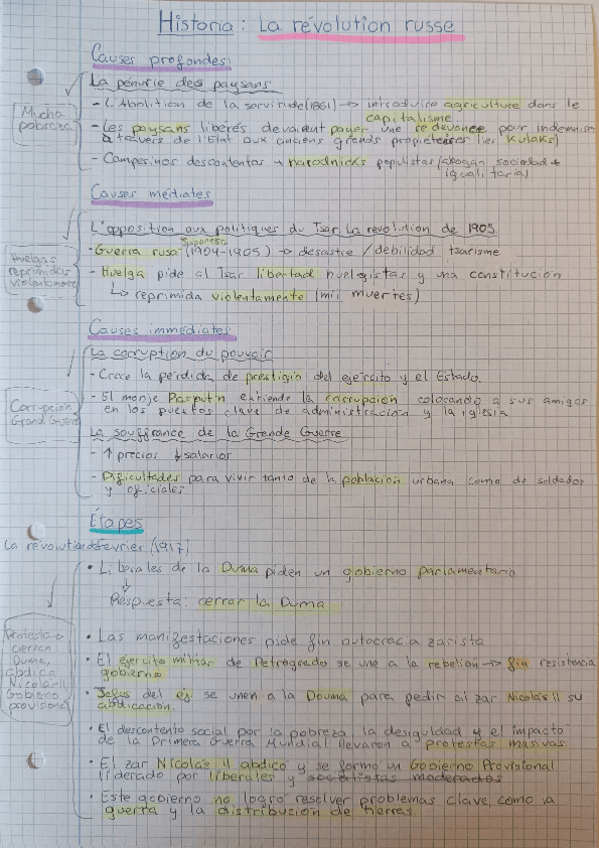 Historia: La révolution russe
Causes profondes:
La pénurie des paysans
Mucha
pobreza
- L'Abolition de la servitude (1861) → introduire agriculture dans le
capitalisme
- Les paysans libérés devaient payer une redevance pour indemniser
à travers de l'État aux anciens grands propiétaires (les Kulaks)
- Campesinos descontentos → narodnicks populistas (abogan sociedad +
igualitaria)
Causes médiates
L'opposition aux politiques du Tsar. La révolution de 1905
Huelgas
reprimidas
violentamente
- Guerra ruso Japonesa (1904-1905) → desastre / debilidad tsarisme
- Huelga pide al Tsar libertad huelguistas y una constitución
↳ reprimida violentamente (mil muertes)
Causes immédiates
La corruption du pouvoir
Corrupción
Grand Guerre
- Crece la pérdida de prestigio del ejército y el Estado.
- El monje Rasputín extiende la corrupción colocando a sus amigos
en los puestos clave de administración y la iglesia
La souffrance de la Grande Guerre
- ↑ precios ↓ salarios
- Dificultades para vivir tanto de la población urbana como de soldados
y oficiales
Étapes
La révolution de Février (1917)
• Liberales de la Duma piden un gobierno parlamentario
↓
Respuesta: cerrar la Duma
Protestas →
cierran
Duma,
abdica
Nicolás II,
Gobierno
provisional
• Las manifestaciones pide fin autocracia zarista
• El ejercito militar de Petrogrado se une a la rebelión → fin resistencia
gobierno
• Jefes del ej. se unen a la Douma para pedir al zar Nicolás II su
abdicación.
• El descontento social por la pobreza, la desiguldad y el impacto
de la Primera Guerra Mundial llevaron a protestas masivas.
• El zar Nicolás II abdicó y se formó un Gobierno Provisional
liderado por liberales y socialistas moderados
• Este gobierno no logró resolver problemas clave como la
guerra y la distribución de tierras.